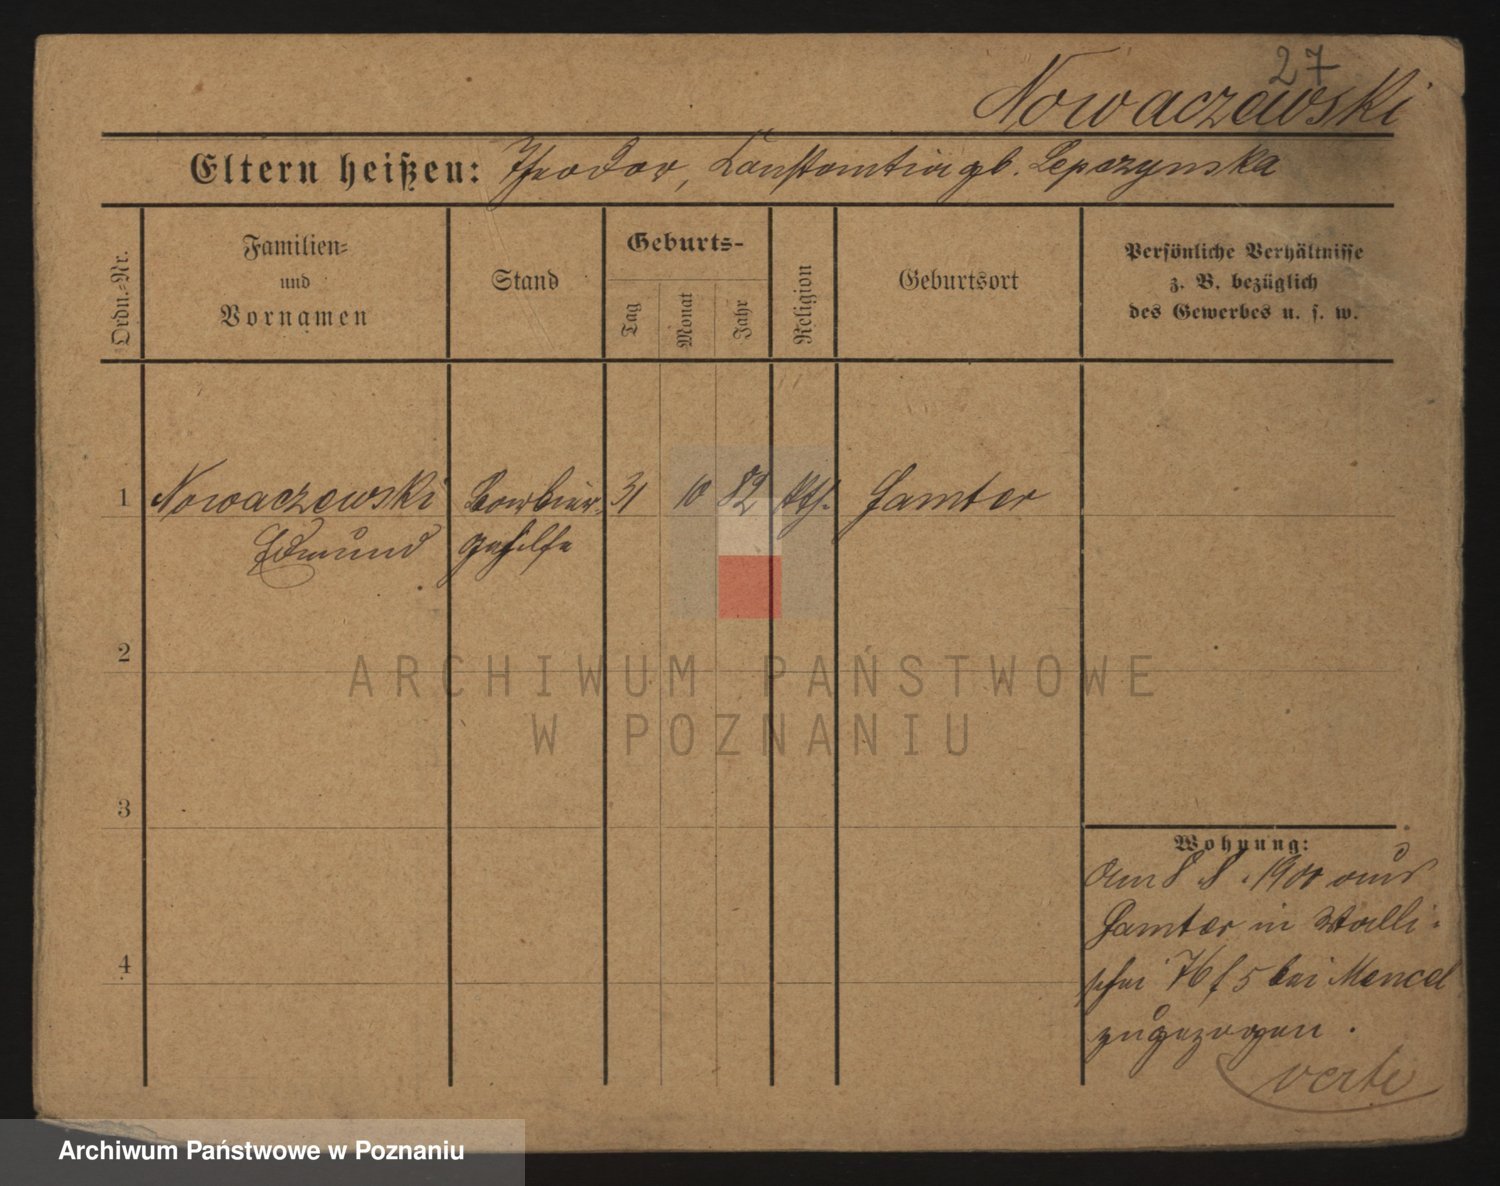 27
Nowaczewski
Eltern heißen: Theodor, Constantia gb. Lepczynska
Ordn.-Nr.
Familien-
und
Vornamen
Stand
Geburts-
Tag
Monat
Jahr
Religion
Geburtsort
Persönliche Verhältnisse
z. B. bezüglich
des Gewerbes u. s. w.
1 Nowaczewski Barbier- 31 10 82 kth. Samter
Edmund gehilfe
2
3
4
Wohnung:
am 8.8.1900 aus
Samter in Walli-
schei 76/5 bei Mencel
zugezogen.
verte
ARCHIWUM PAŃSTWOWE
W POZNANIU
Archiwum Państwowe w Poznaniu